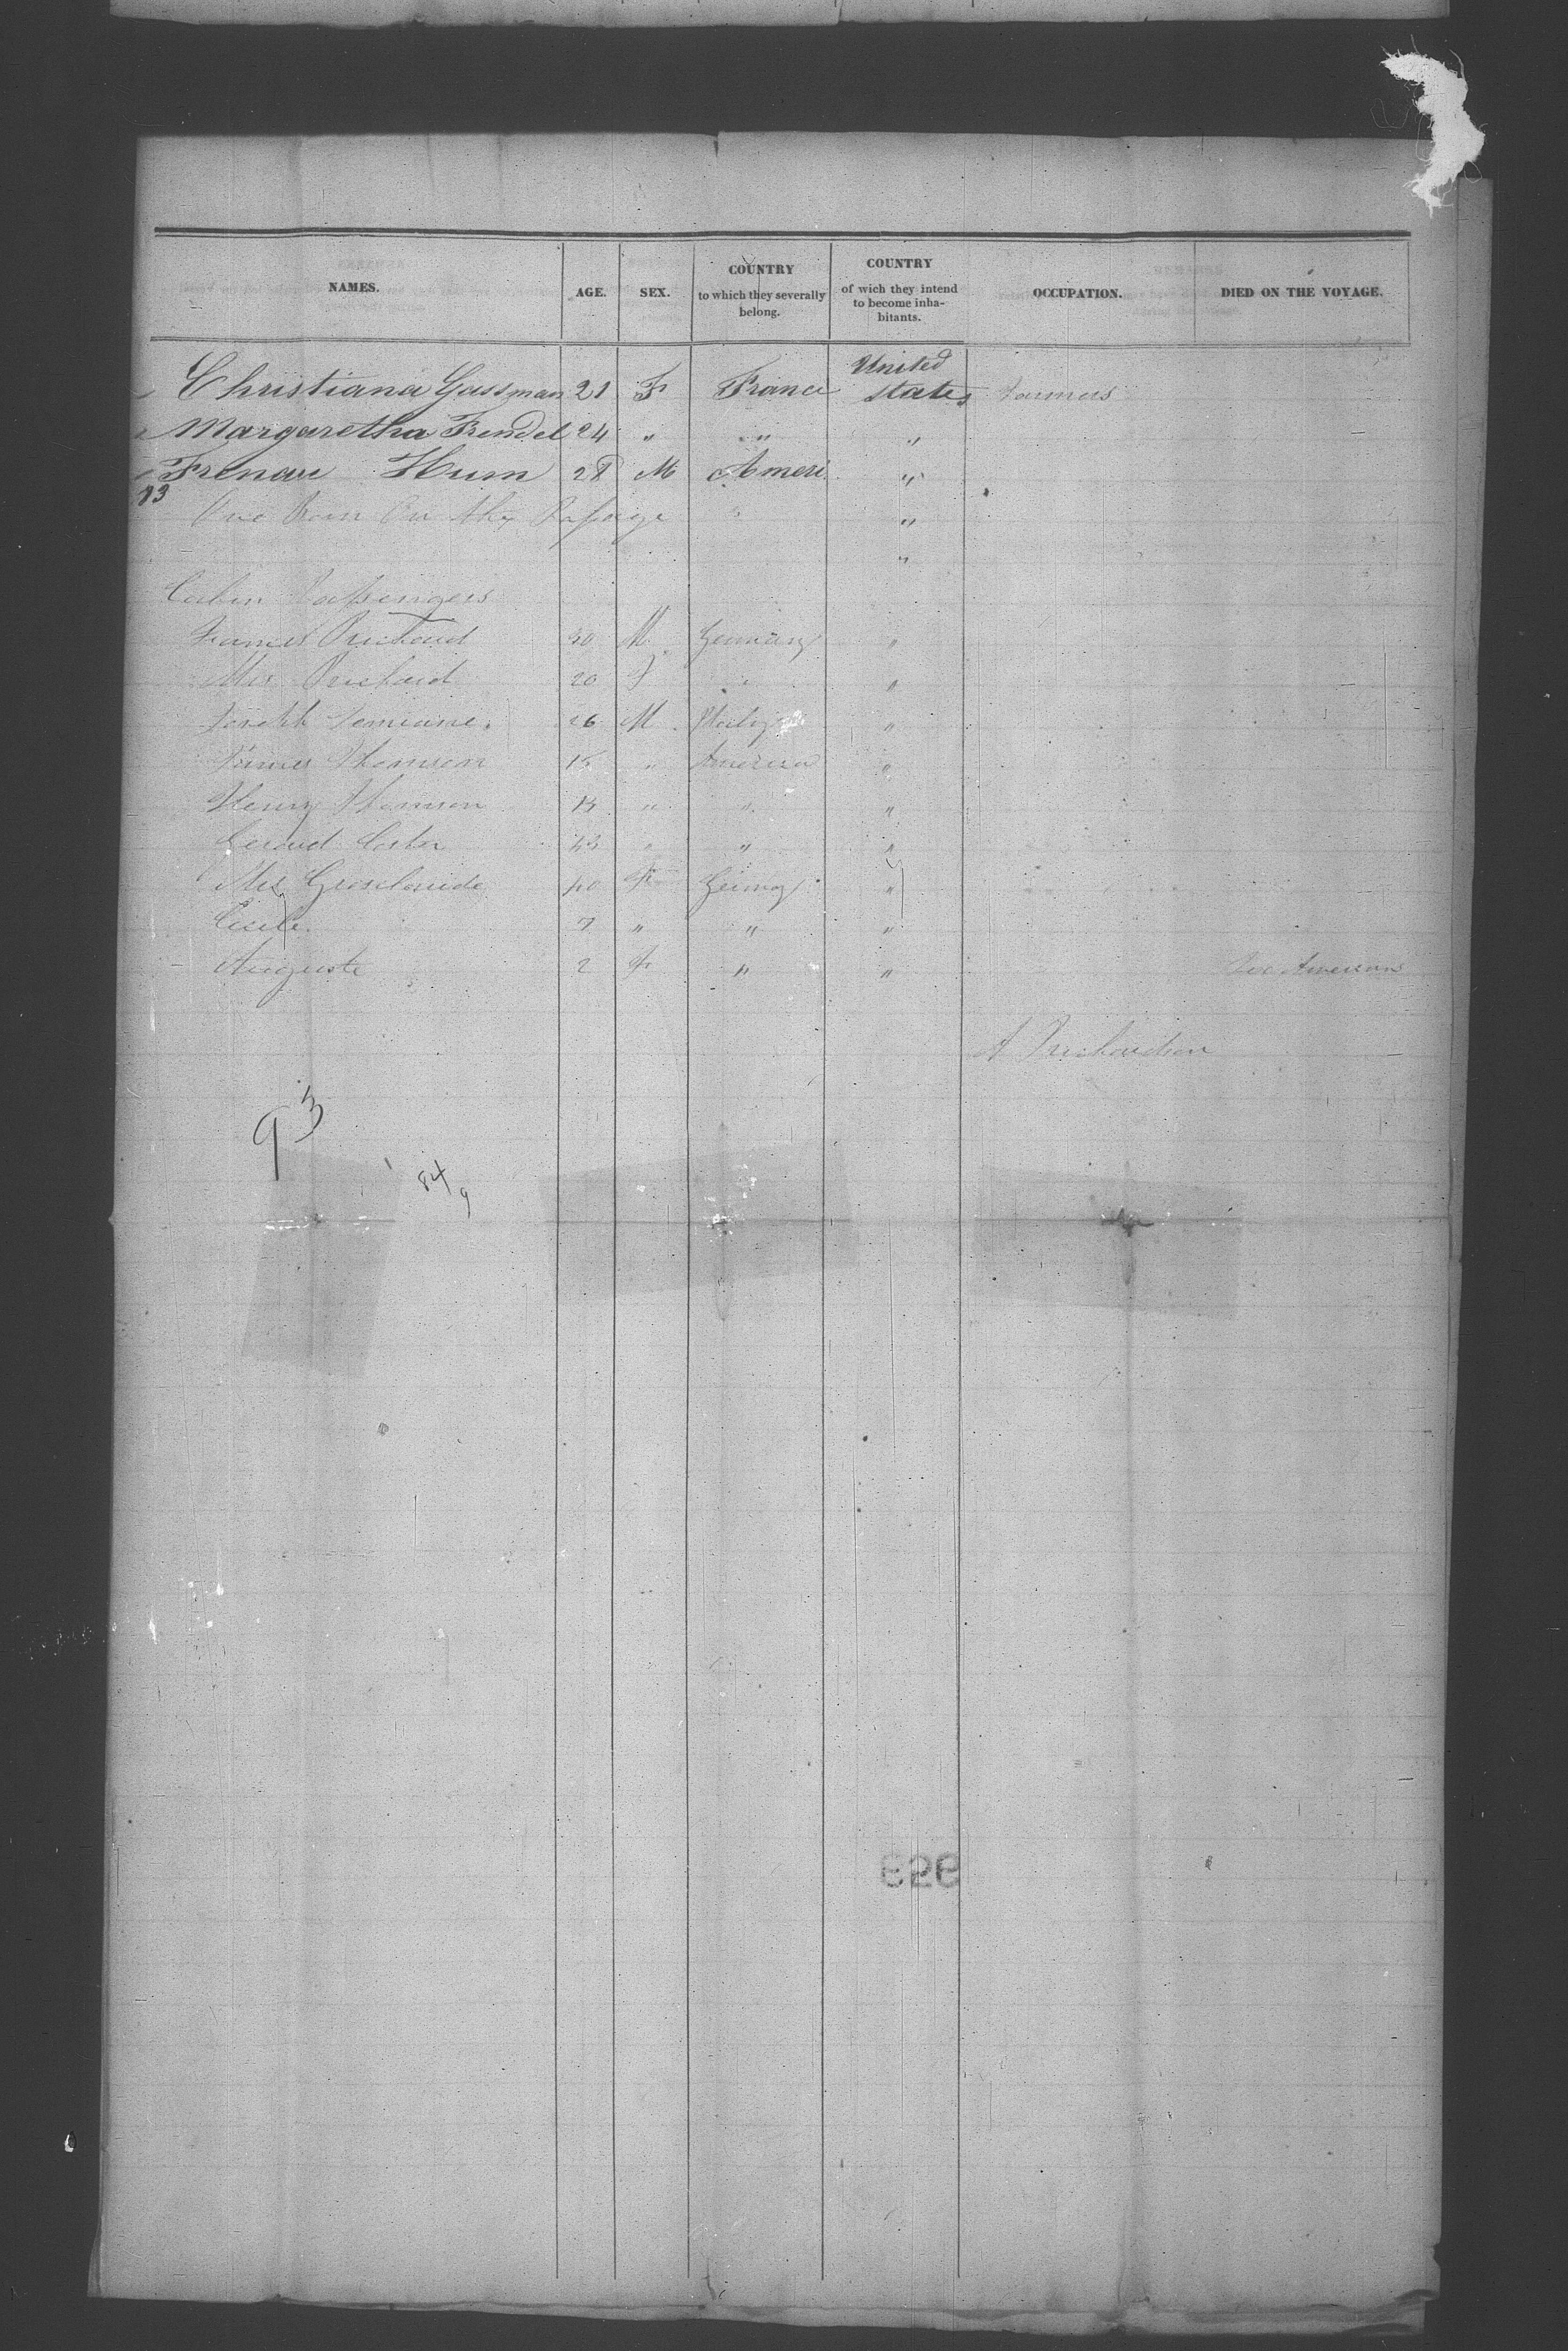 NAMES. AGE. SEX. COUNTRY to which they severally belong. COUNTRY of wich they intend to become inhabitants. OCCUPATION. DIED ON THE VOYAGE.
Christiana Gassman 21 F France United States Farmers
Margaretha Frendel 24 " " "
Frenau Hum 28 M Ameri "
83
One Born On the Passage " "
"
Cabin Passengers
James Prichard 30 M Germany "
Mrs Prichard 20 F " "
Joseph 26 M "
James Thomson 15 " America "
Henry Thomson 13 " " "
Gerard Coster 43 " " "
Mrs 40 F Germany "
Cecile 7 " " "
Auguste 2 F " "
A Richardson
93
84
9
929